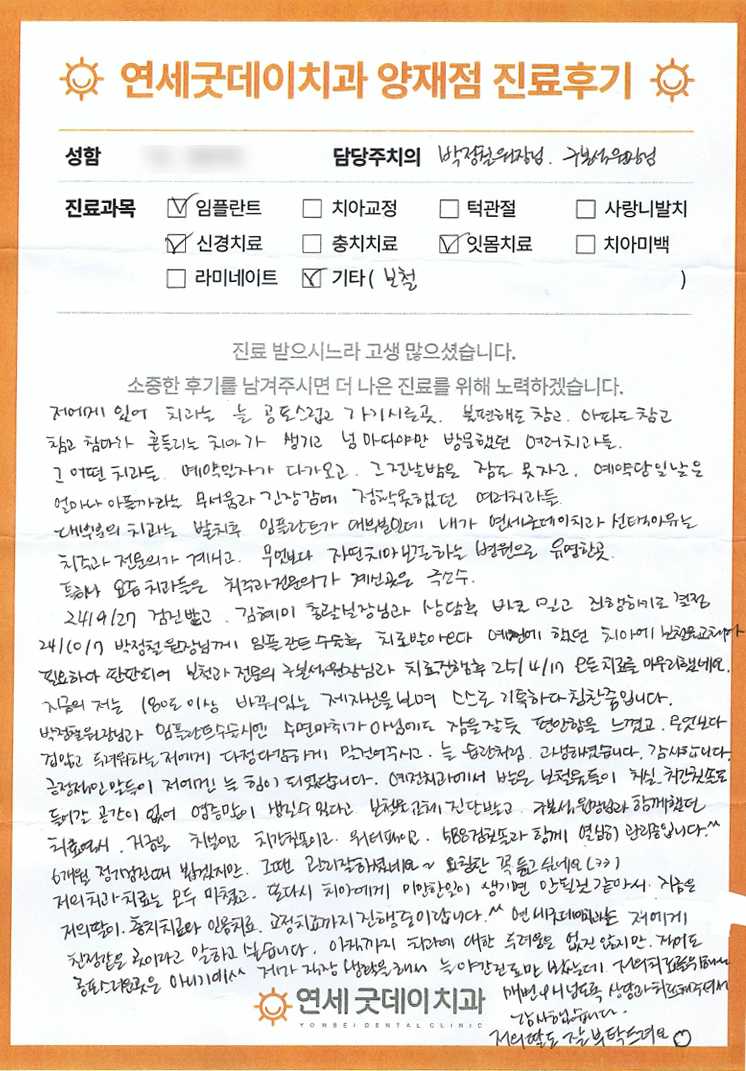 연세굿데이치과 양재점 진료후기
성함 담당주치의 박정철원장님. 구본석원장님
진료과목 임플란트 치아교정 턱관절 사랑니발치
신경치료 충치치료 잇몸치료 치아미백
라미네이트 기타 ( 보철 )
진료 받으시느라 고생 많으셨습니다.
소중한 후기를 남겨주시면 더 나은 진료를 위해 노력하겠습니다.
저에게 있어 치과는 늘 공포스럽고 가기시른곳. 불편해도 참고. 아파도 참고
참고 참다가 흔들리는 치아가 생기고 넘 마다야만 방문했던 여러치과들.
그 어떤 치과든. 예약일자가 다가오고. 그전날밤은 잠도 못자고. 예약당일날은
얼마나 아플까라는 무서움과 긴장감에 정착못했던 여러치과들.
대부분의 치과는 발치후 임플란트가 대부분인데 내가 연세굿데이치과 선택이유는
치주과 전문의가 계시고. 무엇보다 자연치아보존하는 병원으로 유명한곳.
특히나 요즘 치과들은 치주과전문의가 계신곳은 극소수.
24/9/27 검진받고. 김혜미 총괄실장님과 상담후 바로 믿고 진행하기로 결정
24/10/7 박정철원장님께 임플란트수술후 치료받아오다 예전에 했던 치아에 보철물교체가
필요하다 판단되어 보철과 전문의 구본석원장님과 치료진행후 25/4/17 모든치료를 마무리했네요.
지금의 저는 180도 이상 바뀌어있는 제자신을 보며 스스로 기특하다 칭찬중입니다.
박정철원장님과 임플란트수술시엔 수면마취가 아님에도 잠을잘듯 편안함을 느꼈고. 무엇보다
겁많고 두려워하는 저에게 다정다감하게 말건어주시고. 늘 습관처럼. 고생하셨습니다. 감사합니다
긍정적인 말들이 저에겐 늘 힘이 되었답니다. 예전치과에서 받은 보철물들이 치실. 치간칫솔도
들어갈 공간이 없어 염증만이 생길수있다고 보철물교체 진단받고. 구본석원장님과 함께했던
치료였어서. 지금은 치실이고 치간칫솔이고. 워터픽이고. 588검칫솔과 함께 열심히 관리중입니다.^^
6개월 정기검진때 뵙겠지만. 그땐 관리잘하셨네요~ 요칭찬 꼭 듣고싶네요(ㅋㅋ)
저의치과치료는 모두 마쳤고. 또다시 치아에게 미안한일이 생기면 안될것 같아서. 지금은
저의딸이. 충치치료와 잇몸치료. 교정치료까지 진행중이랍니다.^^ 연세굿데이치과는 저에게
친정같은 곳이라고 말하고 싶습니다. 아직까지 치과에 대한 두려움은 없진 않지만. 적어도
공포스러운곳은 아니기에^^ 제가 직장 생활을 해서 늘 야간진료만 봤는데. 저의치료를위해서
매번 애써주시고 상담과 치료해주셔서
감사했습니다.
저의딸도 잘 부탁드려요
연세 굿데이치과
YONSEI DENTAL CLINIC